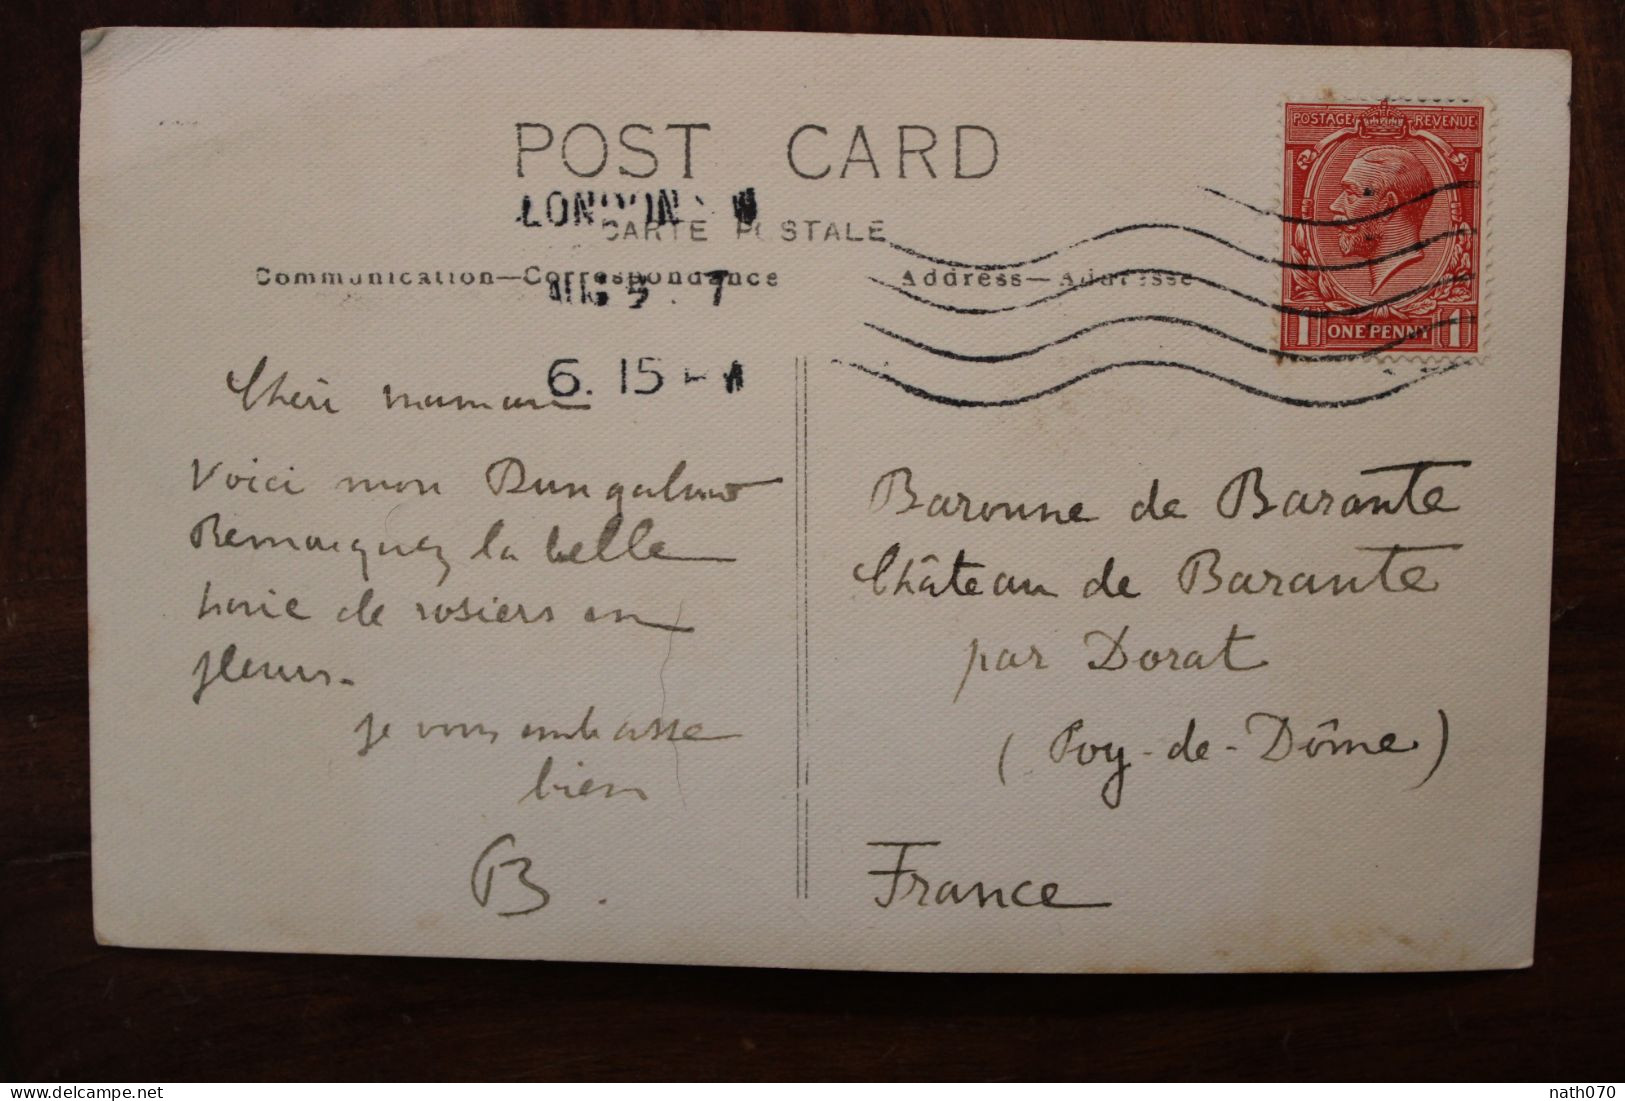 POST CARD
LONDON W
CARTE POSTALE
Communication—Correspondance
Address—Adresse
AUG 5 . 7
6. 15
POSTAGE REVENUE
1 ONE PENNY 1
Chéri maman
Voici mon Bungalow
Remarquez la belle
haie de rosiers en
fleurs.
je vous embrasse
bien
B.
Baronne de Barante
Château de Barante
par Dorat
(Puy-de-Dôme)
France
nath070